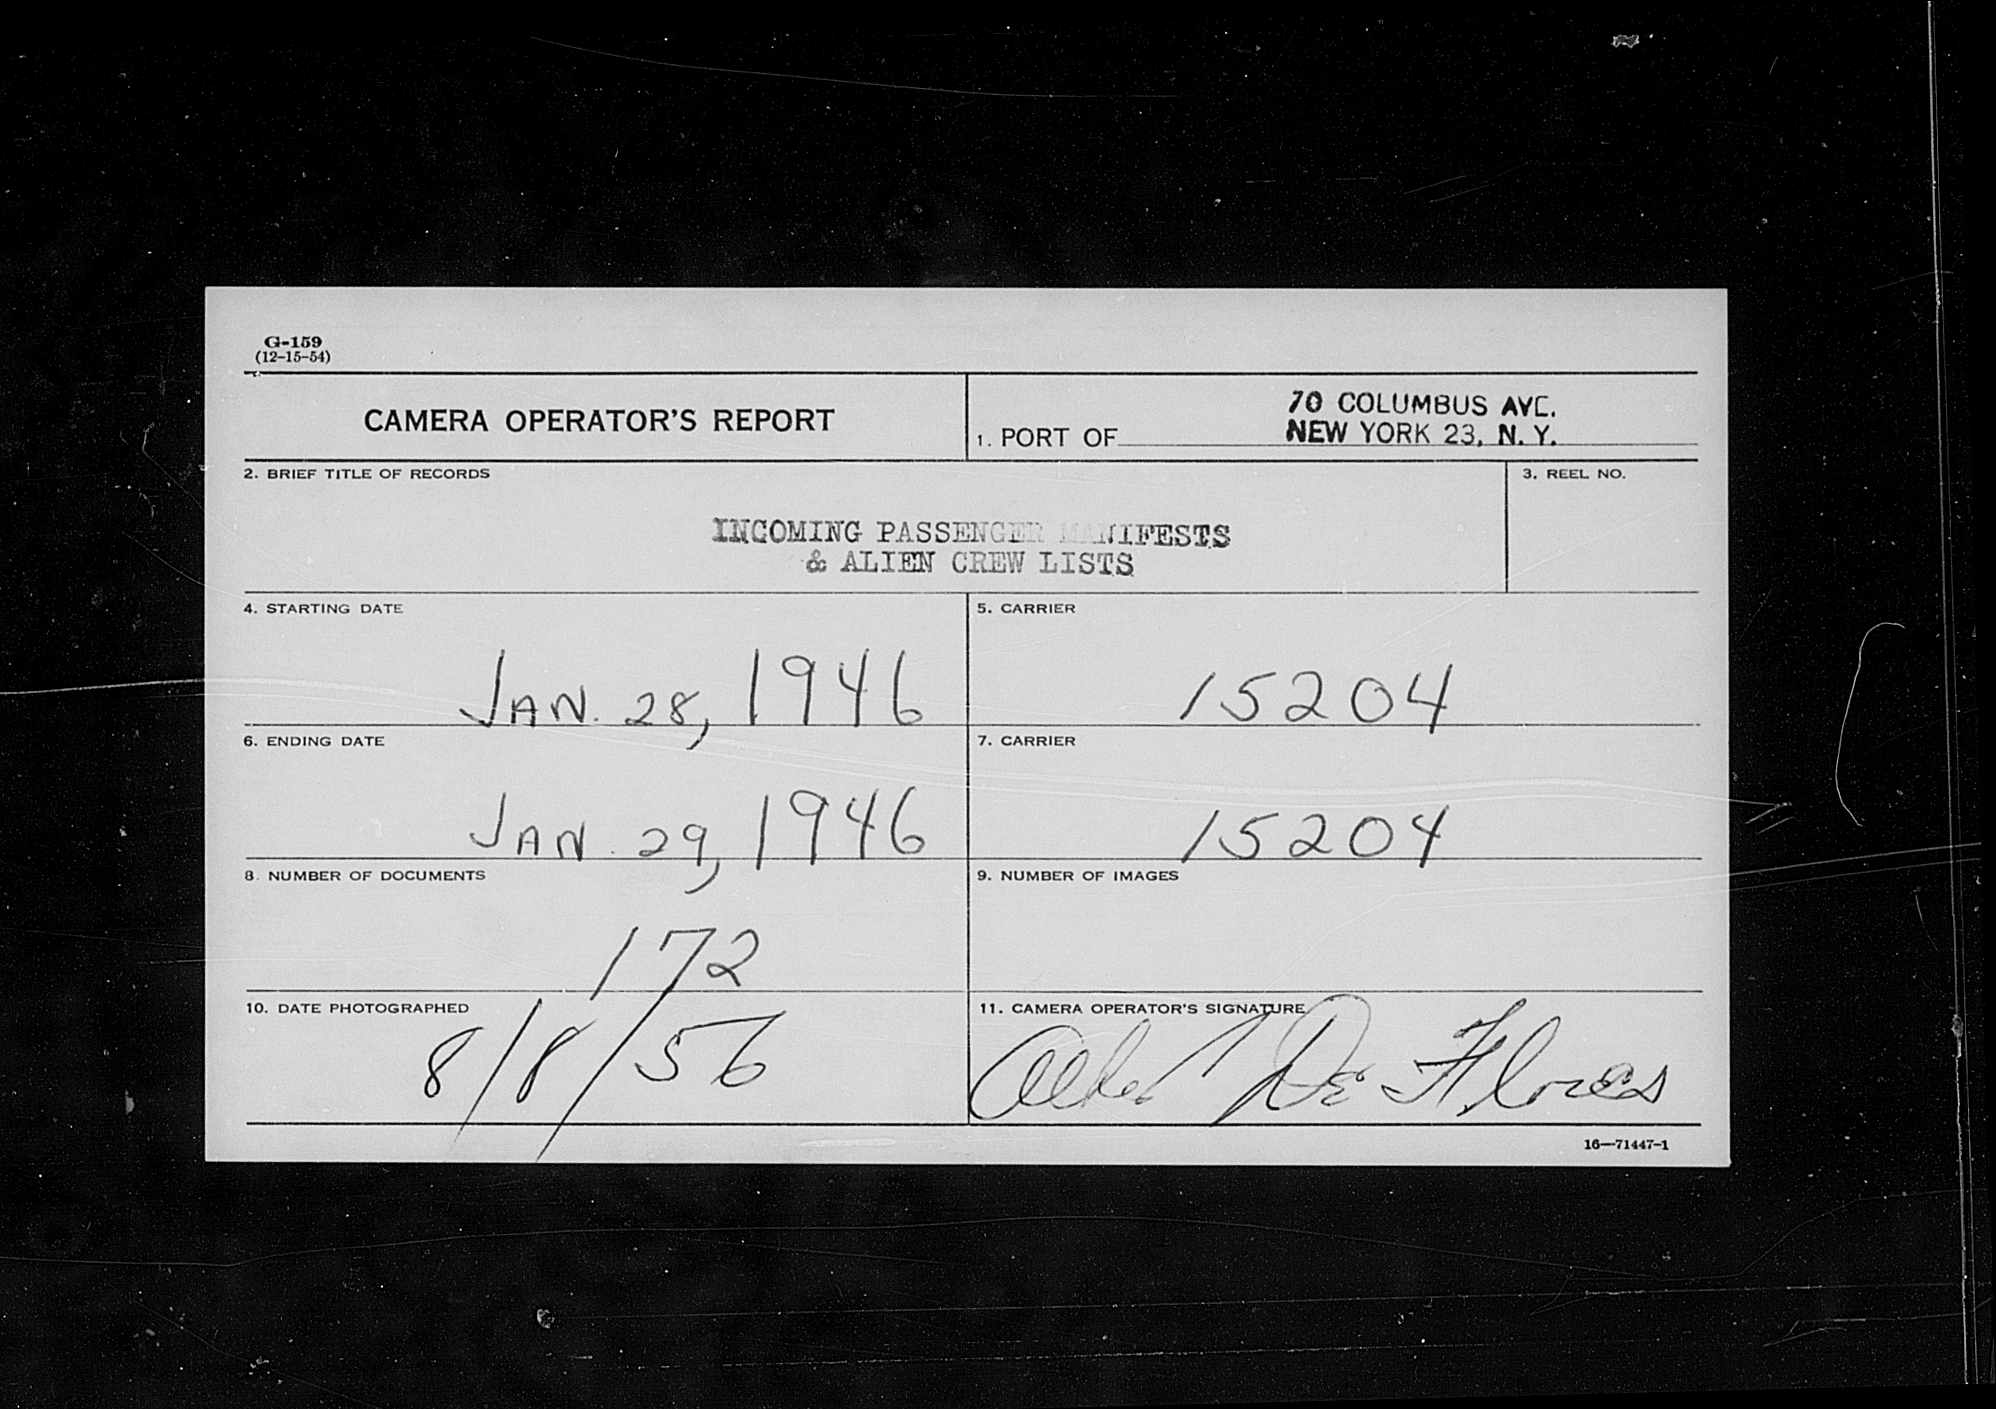 G-159
(12-15-54)
CAMERA OPERATOR'S REPORT
1. PORT OF
70 COLUMBUS AVE.
NEW YORK 23, N. Y.
2. BRIEF TITLE OF RECORDS
3. REEL NO.
INCOMING PASSENGER MANIFESTS
& ALIEN CREW LISTS
4. STARTING DATE
5. CARRIER
JAN. 28, 1946
15204
6. ENDING DATE
7. CARRIER
JAN. 29, 1946
15204
8. NUMBER OF DOCUMENTS
9. NUMBER OF IMAGES
172
10. DATE PHOTOGRAPHED
11. CAMERA OPERATOR'S SIGNATURE
8/8/56
De Flores
16—71447-1